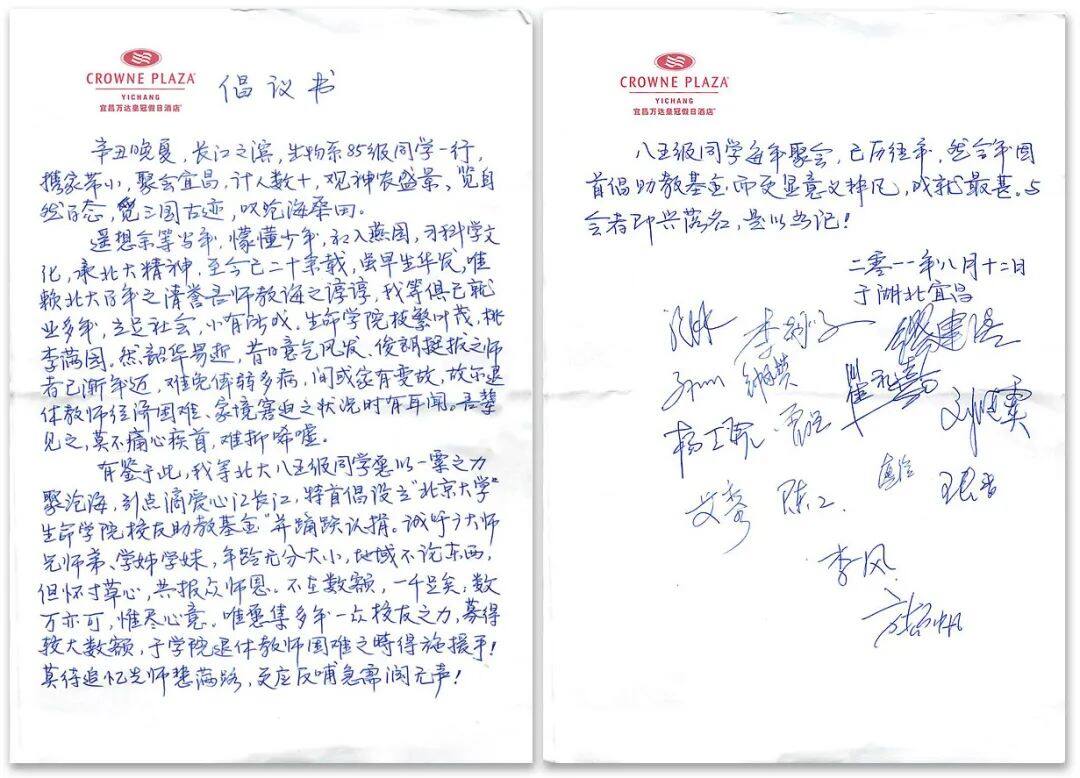 CROWNE PLAZA
YICHANG
宜昌万达皇冠假日酒店
倡议书
辛丑晚夏,长江之滨,生物系85级同学一行,
携家带小,聚会宜昌,计人数十,观神农盛景、览自
然百态,览三国古迹,叹沧海桑田。
遥想余等当年,懵懂少年,初入燕园,习科学文
化,承北大精神,至今已二十余载,虽早生华发,唯
赖北大百年之清誉吾师教诲之谆谆,我等俱已就
业多年,立足社会,小有所成。生命学院枝繁叶茂,桃
李满园。然韶华易逝,昔日意气风发、俊朗挺拔之师
者已渐年迈,难免体转多病,间或家有变故,故尔退
休教师经济困难、家境窘迫之状况时有耳闻。吾辈
见之,莫不痛心疾首,难抑唏嘘。
有鉴于此,我等北大八五级同学愿以一粟之力
聚沧海,引点滴爱心汇长江,特首倡设立“北京大学
生命学院校友助教基金”并踊跃认捐。诚呼广大师
兄师弟、学姊学妹,年龄无分大小,地域不论东西,
但怀寸草心,共报众师恩。不在数额,一千足矣,数
万亦可,惟尽心意。唯愿集多年一众校友之力,募得
较大数额,于学院退休教师困难之时得施援手!
莫待追忆先师楚满路,更应反哺急需润无声!
CROWNE PLAZA
YICHANG
宜昌万达皇冠假日酒店
八五级同学每年聚会,已历往年,然今年因
首倡助教基金而更显意义神凡,成就最甚。与
会者即兴落名,是以为记!
二零一一年八月十二日
于湖北宜昌
杨
艾秀
陈工
李风